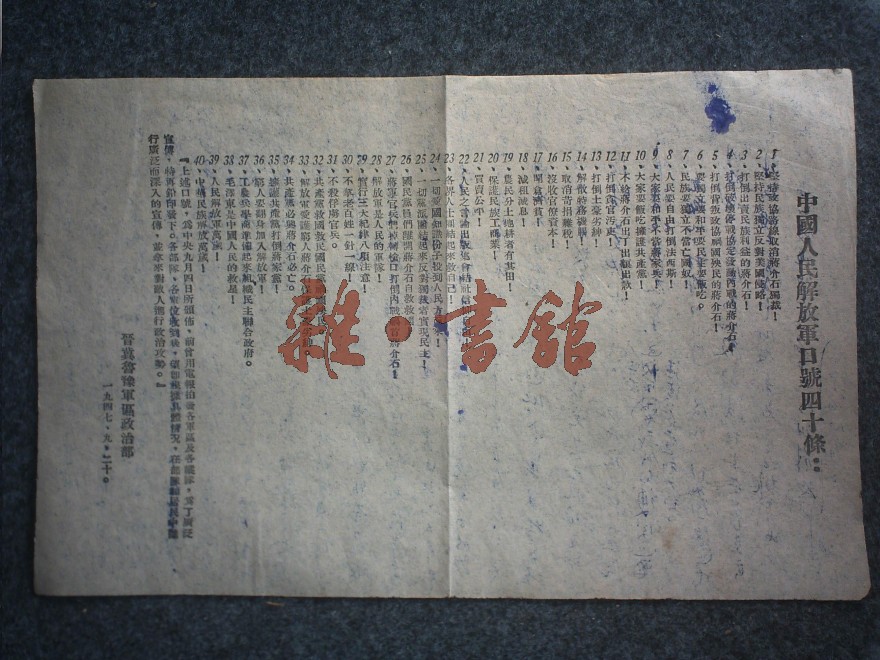 中國人民解放軍口號四十條：
1、堅持政協路線取消蔣介石獨裁！
2、堅持民族獨立反對美國侵略！
3、打倒出賣民族利益的蔣介石！
4、打倒破壞停戰協定發動內戰的蔣介石！
5、打倒背叛政協禍國殃民的蔣介石！
6、要獨立要和平要民主要飯吃。
7、民族要獨立不當亡國奴！
8、人民要自由打倒法西斯！
9、大家要和平不當蔣家兵！
10、大家要飯吃擁護共產黨！
11、不給蔣介石出丁出糧出款！
12、打倒貪官污吏！
13、打倒土豪劣紳！
14、解散特務機關！
15、取消苛捐雜稅！
16、沒收官僚資本！
17、開倉濟貧！
18、減租減息！
19、農民分土地耕者有其田！
20、保護民族工商業！
21、買賣公平！
22、人民之言論出版集會結社信仰
23、各界人士團結起來救自己！
24、一切愛國知識份子投到人民方面來！
25、一切黨派團結起來反對獨裁者實現民主！
26、國民黨員們離開蔣介石自救救國！
27、蔣軍官兵們掉轉槍口打倒內戰禍首蔣介石！
28、解放軍是人民的軍隊！
29、實行三大紀律八項注意！
30、不拿老百姓一針一線！
31、不殺俘虜官兵。
32、共產黨救國救民國民黨
33、解放軍愛護窮人蔣介石
34、共產黨必勝蔣介石必亡。
35、擁護共產黨打倒蔣家黨！
36、窮人要翻身加入解放軍！
37、工農兵學商聯合起來組織民主聯合政府。
38、毛澤東是中國人民的救星！
39、人民解放軍萬歲！
40、中華民族解放萬歲！
『上述口號，為中央九月四日所頒佈，前曾用電報拍發各軍區及各縱隊，為了廣泛
宣傳，特再鉛印發下。各部隊、各單位收到後，
行廣泛而深入的宣傳，並拿來對敵人進行政治攻勢。』
晉冀魯豫軍區政治部
一九四七、九、二十。
雜·書館